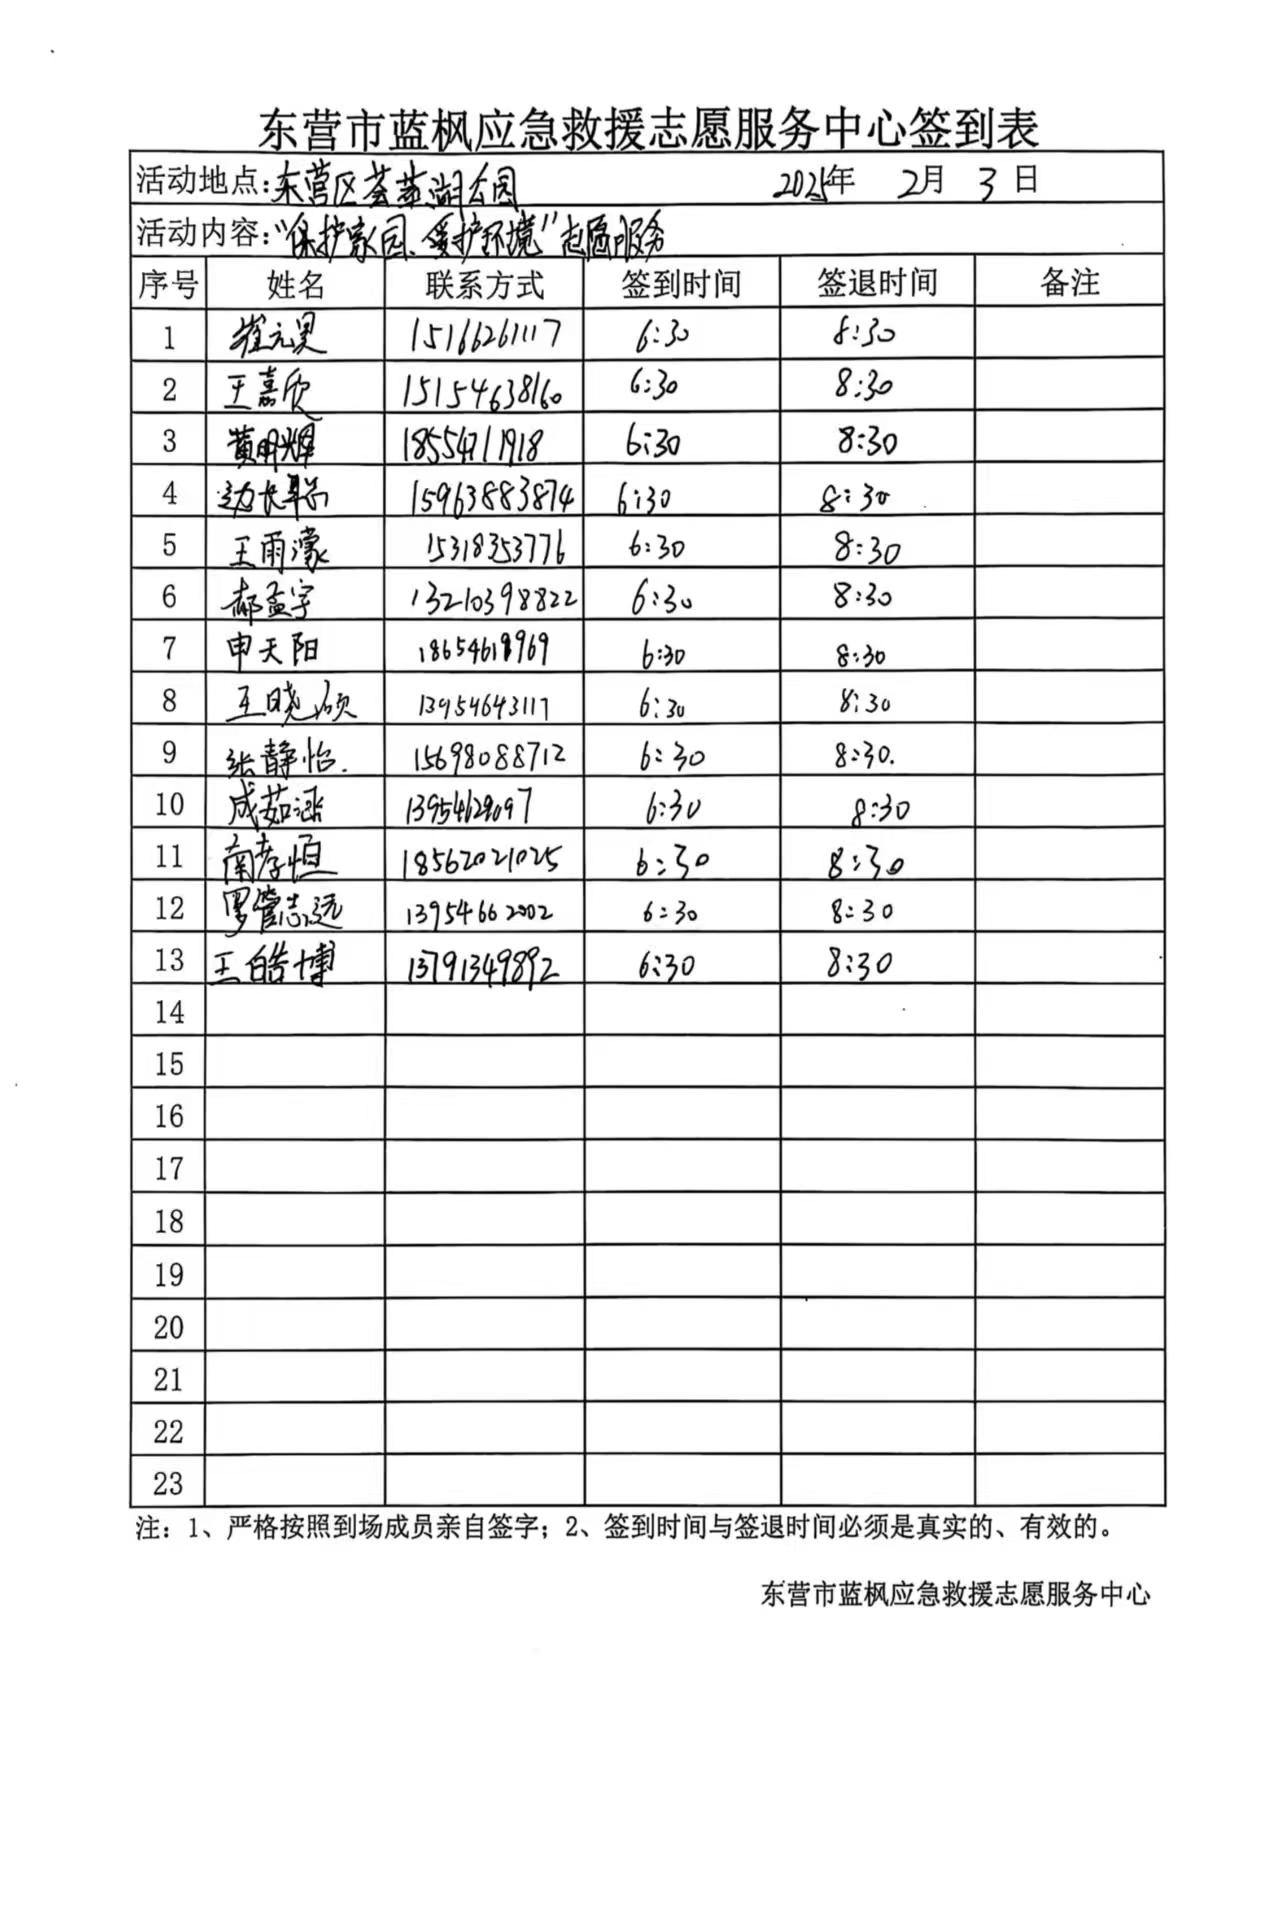 东营市蓝枫应急救援志愿服务中心签到表
活动地点:东营区荟萃湖公园 2025年 2月 3日
活动内容:“保护家园、爱护环境”志愿服务
序号 姓名 联系方式 签到时间 签退时间 备注
1 崔元昊 15166261117 6:30 8:30
2 王嘉欣 15154638160 6:30 8:30
3 黄明辉 18554711918 6:30 8:30
4 边长 15963883874 6:30 8:30
5 王雨濛 15318353776 6:30 8:30
6 郝孟宇 13210398822 6:30 8:30
7 申天阳 6:30 8:30
8 王晓颀 13954643117 6:30 8:30
9 张静怡. 15698088712 6:30 8:30.
10 成茹涵 6:30 8:30
11 南孝恒 18562021025 6:30 8:30
12 罗管志远 13954662002 6:30 8:30
13 王皓博 13791349892 6:30 8:30
14
15
16
17
18
19
20
21
22
23
注：1、严格按照到场成员亲自签字；2、签到时间与签退时间必须是真实的、有效的。
东营市蓝枫应急救援志愿服务中心